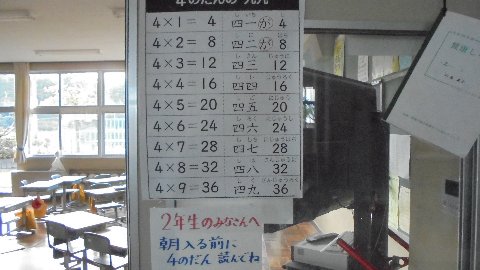 4のだんの九九
4×1=4 四一が4
4×2=8 四二が8
4×3=12 四三 12
4×4=16 四四 16
4×5=20 四五 20
4×6=24 四六 24
4×7=28 四七 28
4×8=32 四八 32
4×9=36 四九 36
2年生のみなさんへ
朝入る前に
4のだん 読んでね